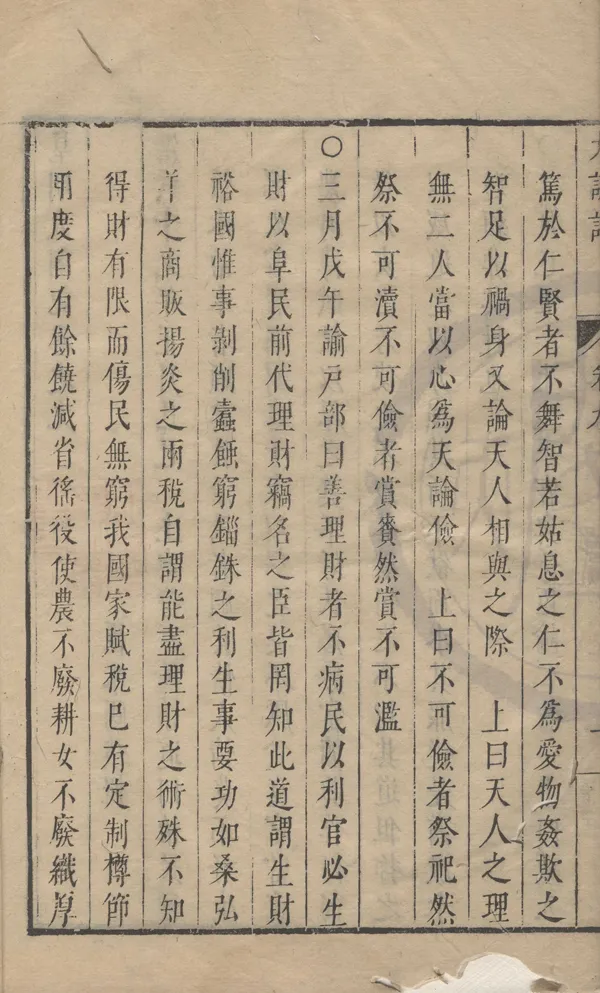 篤於仁賢者不舞智若姑息之仁不為愛物姦欺之
智足以禍身又論天人相與之際　上曰天人之理
無二人當以心為天論儉　上曰不可儉者祭祀然
祭不可瀆不可儉者賞賚然賞不可濫
○三月戊午諭戶部曰善理財者不病民以利官必生
財以阜民前代理財竊名之臣皆罔知此道謂生財
裕國惟事剝削蠹蝕窮錙銖之利生事要功如桑弘
羊之商販揚炎之兩稅自謂能盡理財之術殊不知
得財有限而傷民無窮我國家賦稅已有定制樽節
用度自有餘饒減省徭役使農不廢耕女不廢織厚